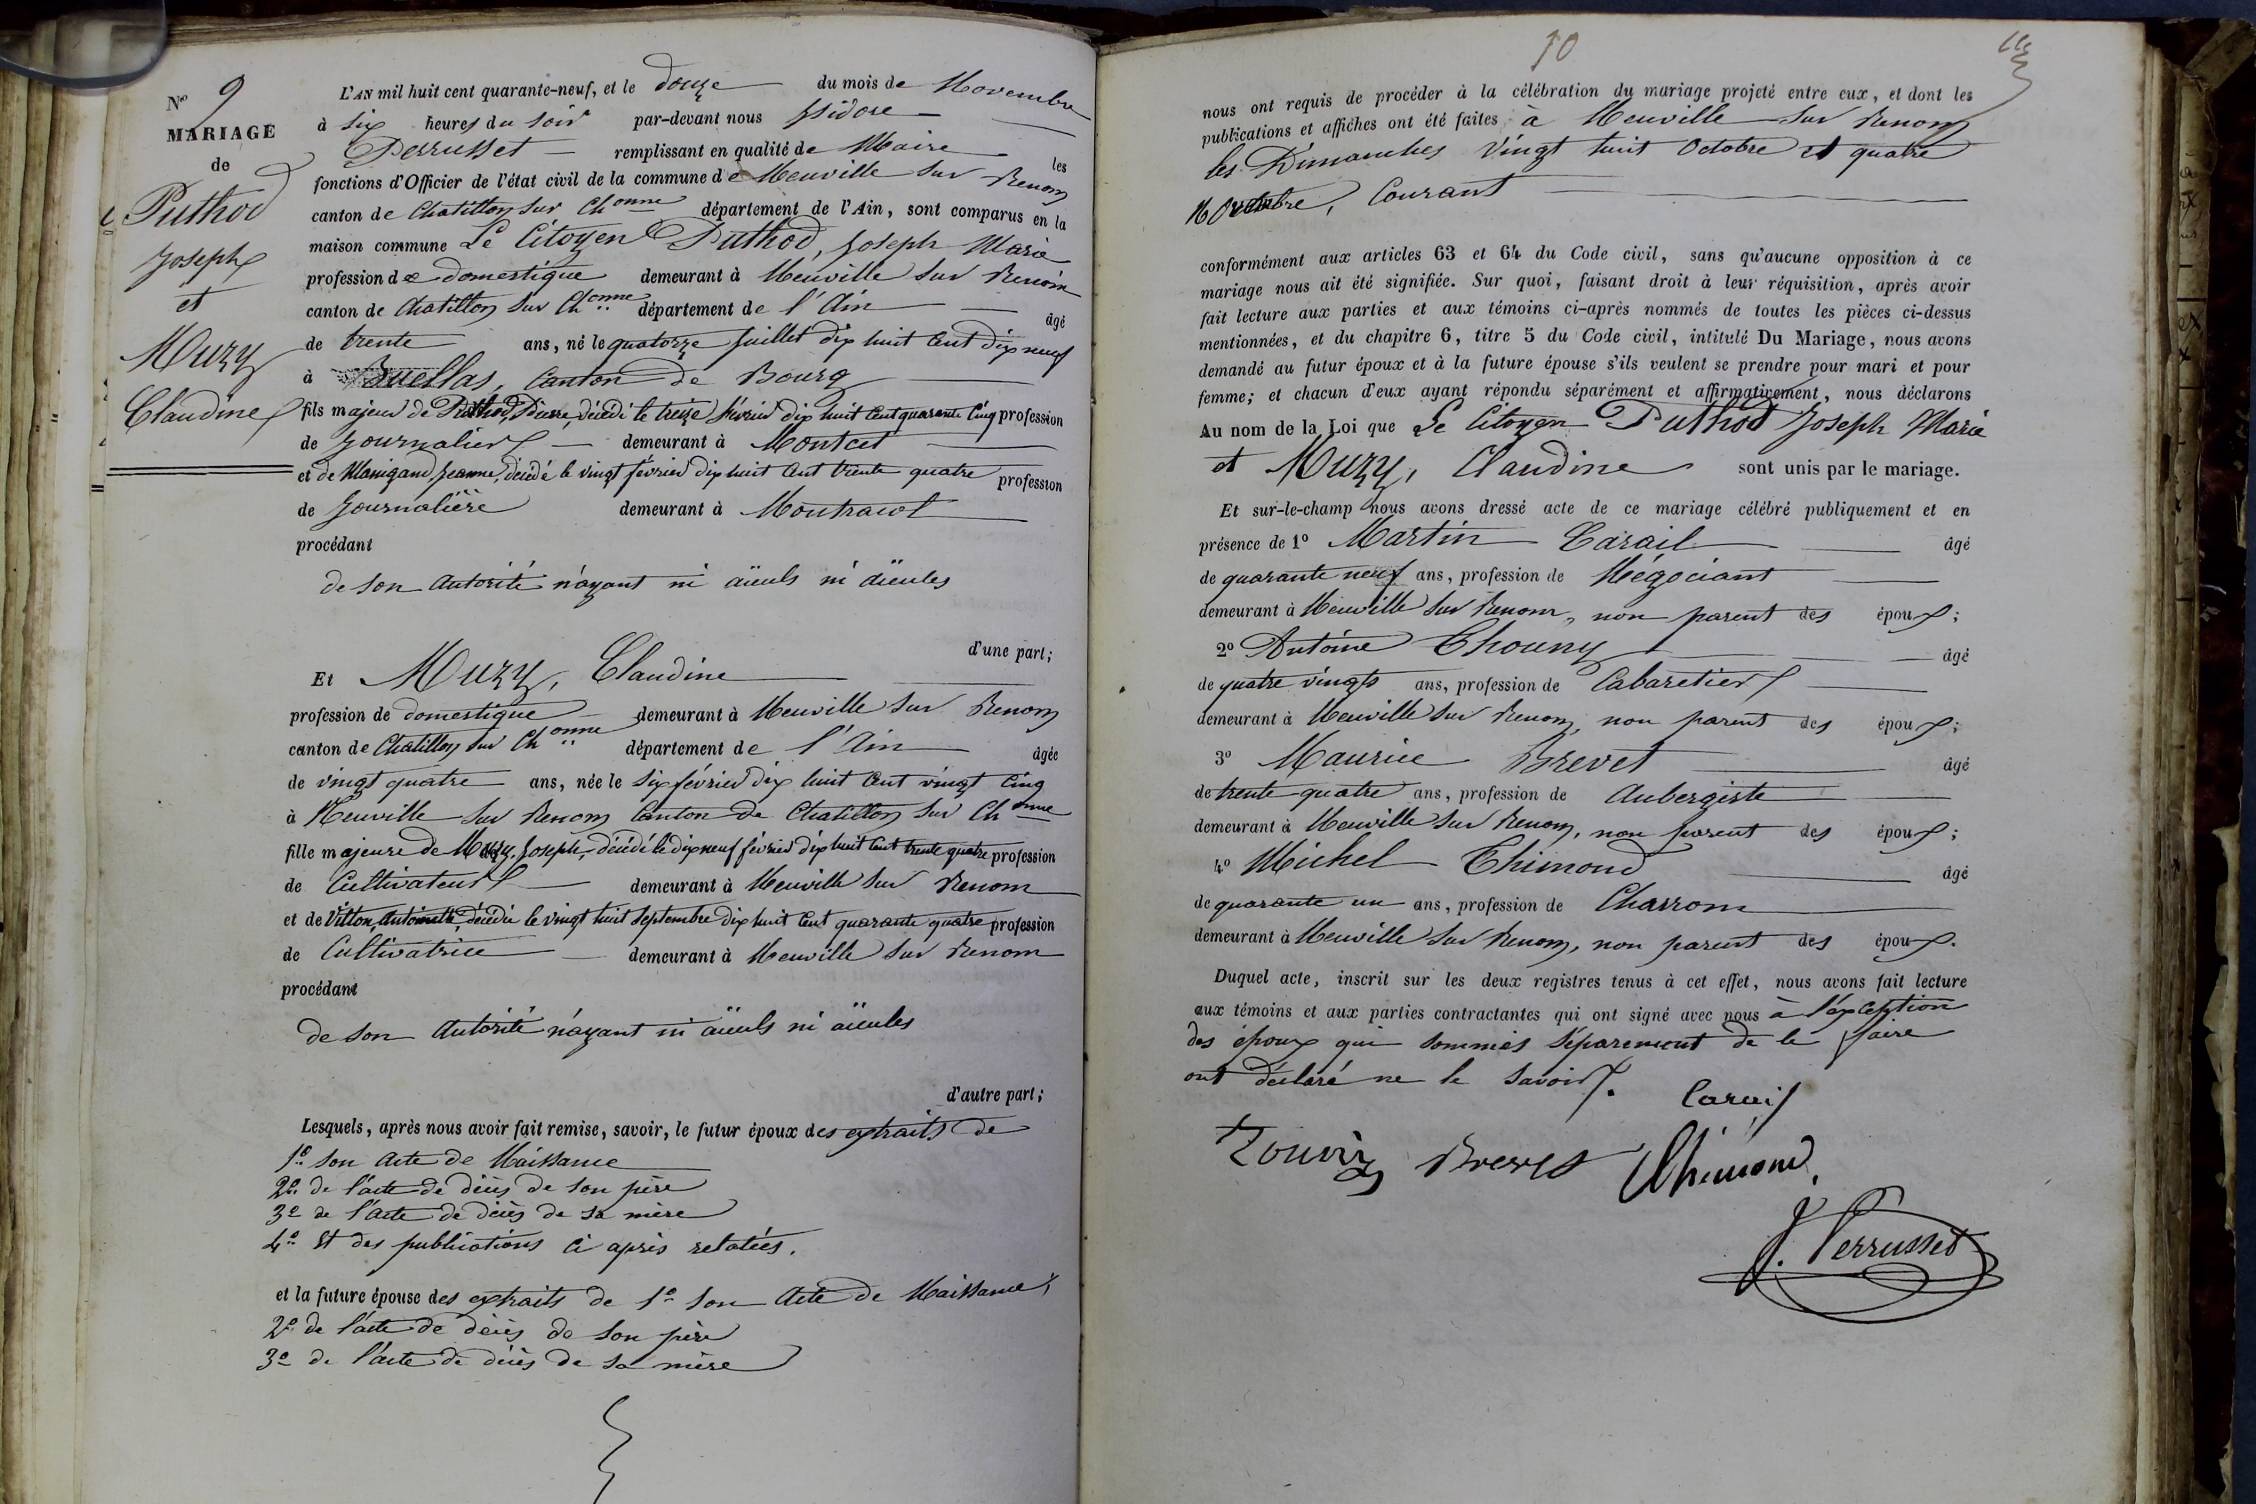 N° 9
MARIAGE
de
Puthod
Joseph
et
Muzy
Claudine
L'AN mil huit cent quarante-neuf, et le douze du mois de Novembre
à six heures du soir par-devant nous Isidore
Perrusset remplissant en qualité de Maire les
fonctions d'Officier de l'état civil de la commune de Neuville sur Renom
canton de Chatillon sur Chonne département de l'Ain, sont comparus en la
maison commune Le Citoyen Puthod, Joseph Marie
profession de domestique demeurant à Neuville sur Renom
canton de Chatillon sur Chonne département de l'Ain âgé
de trente ans, né le quatorze juillet dix huit cent dix neuf
à Buellas, Canton de Bourg
fils majeur de Puthod, Pierre, décédé le treize février dix huit cent quarante cinq profession
de Journalier demeurant à Montcet
et de Manigand, Jeanne, décédé le vingt février dix huit cent trente quatre profession
de Journalière demeurant à Montracol
procédant
de son autorité n'ayant ni aïeuls ni aïeules
d'une part;
Et Muzy, Claudine
profession de domestique demeurant à Neuville sur Renom
canton de Chatillon sur Chonne département de l'Ain âgée
de vingt quatre ans, née le six février dix huit cent vingt cinq
à Neuville sur Renom Canton de Chatillon sur Chonne
fille majeure de Muzy, Joseph, décédé le dix neuf février dix huit cent trente quatre profession
de Cultivateur demeurant à Neuville sur Renom
et de Vitton, Antoinette, décédée le vingt huit septembre dix huit cent quarante quatre profession
de Cultivatrice demeurant à Neuville sur Renom
procédant
de son autorité n'ayant ni aïeuls ni aïeules
d'autre part;
Lesquels, après nous avoir fait remise, savoir, le futur époux des extraits de
1° son acte de Naissance
2° de l'acte de décès de son père
3° de l'acte de décès de sa mère
4° Et des publications ci après relatées.
et la future épouse des extraits de 1° son acte de Naissance,
2° de l'acte de décès de son père
3° de l'acte de décès de sa mère
10
nous ont requis de procéder à la célébration du mariage projeté entre eux, et dont les
publications et affiches ont été faites à Neuville sur Renom
les Dimanches vingt huit Octobre et quatre
Novembre, Courant
conformément aux articles 63 et 64 du Code civil, sans qu'aucune opposition à ce
mariage nous ait été signifiée. Sur quoi, faisant droit à leur réquisition, après avoir
fait lecture aux parties et aux témoins ci-après nommés de toutes les pièces ci-dessus
mentionnées, et du chapitre 6, titre 5 du Code civil, intitulé Du Mariage, nous avons
demandé au futur époux et à la future épouse s'ils veulent se prendre pour mari et pour
femme; et chacun d'eux ayant répondu séparément et affirmativement, nous déclarons
Au nom de la Loi que Le Citoyen Puthod Joseph Marie
et Muzy, Claudine sont unis par le mariage.
Et sur-le-champ nous avons dressé acte de ce mariage célébré publiquement et en
présence de 1° Martin Carail âgé
de quarante neuf ans, profession de Négociant
demeurant à Neuville sur Renom, non parent des époux;
2° Antoine Thouny âgé
de quatre vingts ans, profession de Cabaretier
demeurant à Neuville sur Renom, non parent des époux;
3° Maurice Brevet âgé
de trente quatre ans, profession de Aubergiste
demeurant à Neuville sur Renom, non parent des époux;
4° Michel Thimond âgé
de quarante un ans, profession de Charron
demeurant à Neuville sur Renom, non parent des époux.
Duquel acte, inscrit sur les deux registres tenus à cet effet, nous avons fait lecture
aux témoins et aux parties contractantes qui ont signé avec nous à l'exception
des époux qui sommés séparément de le faire
ont déclaré ne le savoir.
Carail
Brevet Thimond
J. Perrusset